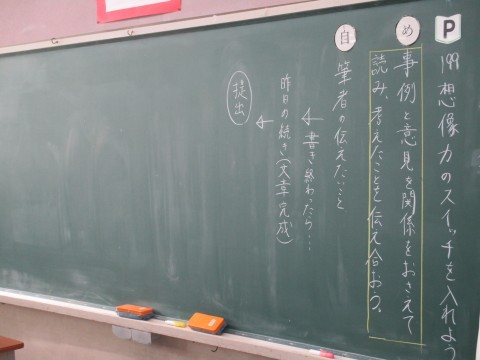 P 199 想像力のスイッチを入れよう
め 事例と意見を関係をおさえて
読み、考えたことを伝え合おう。
自 筆者の伝えたいこと
書き終わったら…
昨日の続き(文章完成)
提出